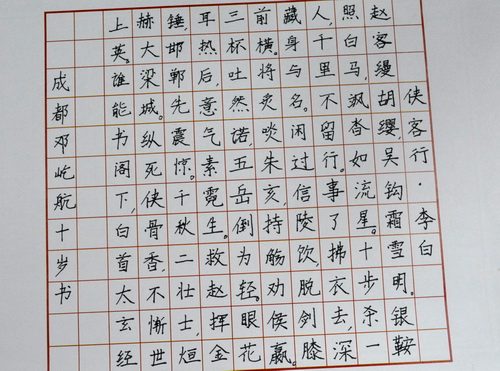 侠客行·李白
赵客缦胡缨,吴钩霜雪明。银鞍
照白马,飒沓如流星。十步杀一
人,千里不留行。事了拂衣去,深
藏身与名。闲过信陵饮,脱剑膝
前横。将炙啖朱亥,持觞劝侯嬴。
三杯吐然诺,五岳倒为轻。眼花
耳热后,意气素霓生。救赵挥金
锤,邯郸先震惊。千秋二壮士,烜
赫大梁城。纵死侠骨香,不惭世
上英。谁能书阁下,白首太玄经
成都邓屹航十岁书